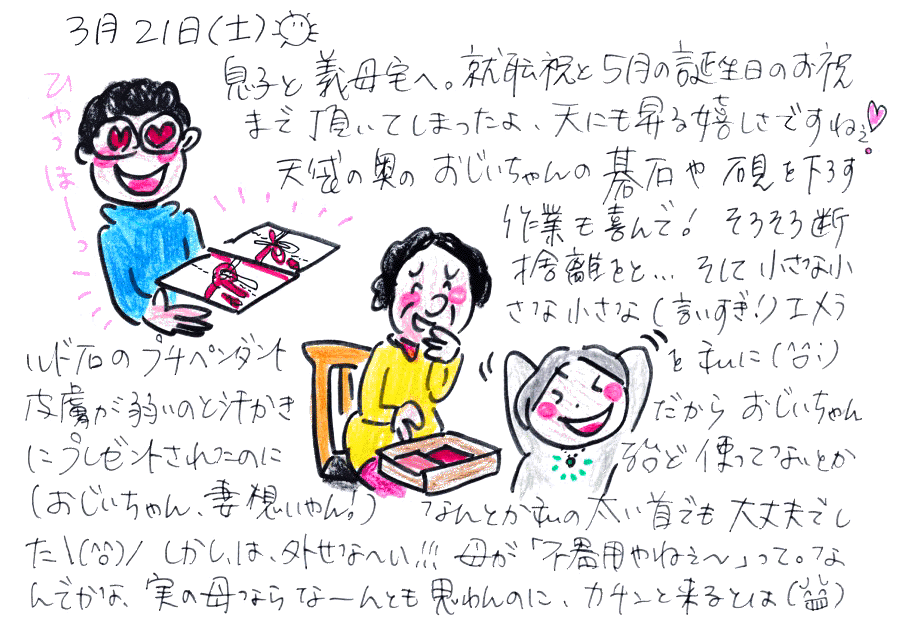 3月21日(土)
ひやっほーっ
息子と義母宅へ。就転祝と5月の誕生日のお祝
まで頂いてしまったよ、天にも昇る嬉しさですねぇ
天袋の奥のおじいちゃんの碁石や硯を下ろす
作業も喜んで! そろそろ断
捨離をと… そして小さな小
さな小さな(言いすぎ!)エメラ
ルド石のプチペンダント
を私に(^^;)
皮膚が弱いのと汗かき
だからおじいちゃん
にプレゼントされたのに
殆ど使ってないとか
(おじいちゃん、妻想いやん!)
なんとか私の太い首でも大丈夫でし
た\(^^)/ しかし、は、外せなへい!!! 母が「不器用やねぇ〜」って。な
んでかな、実の母ならなーんとも思わんのに、カチンと来るとは(^^)